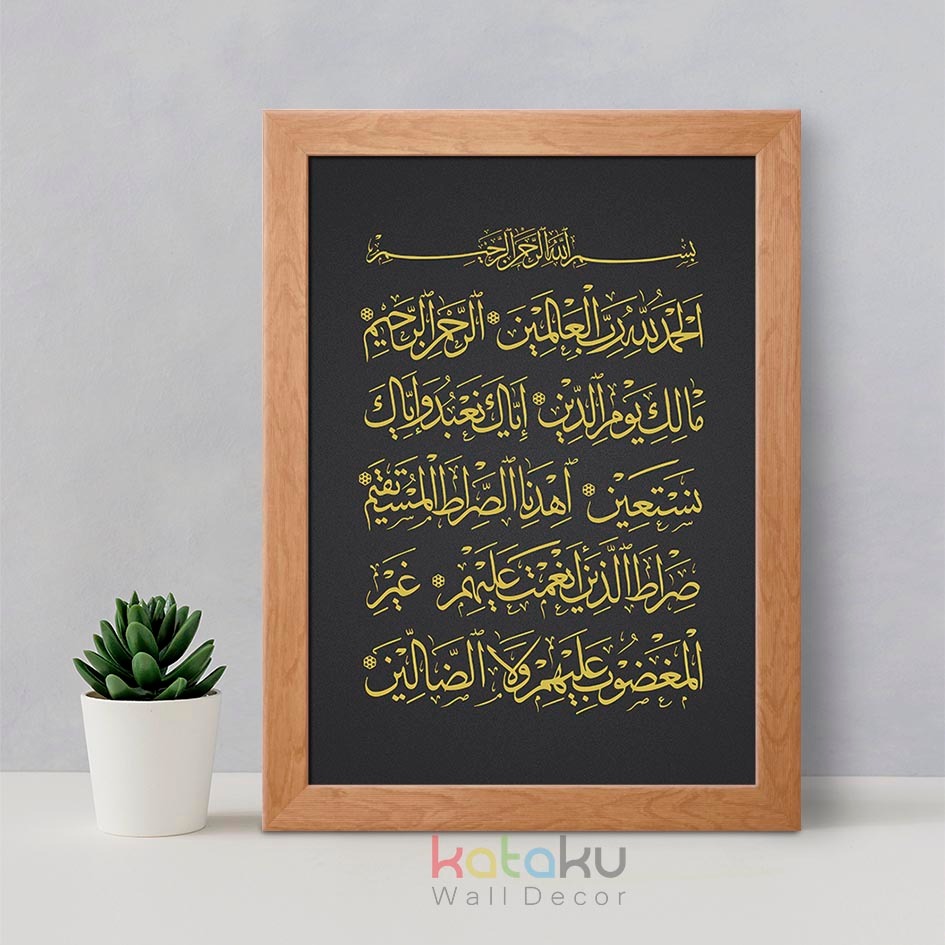 بِسْمِ اللَّهِ الرَّحْمَنِ الرَّحِيمِ
اَلْحَمْدُ لِلَّهِ رَبِّ الْعَالَمِينَ ۞ ٱلرَّحْمَنِ ٱلرَّحِيمِ ۞
مَالِكِ يَوْمِ ٱلدِّينِ ۞ إِيَّاكَ نَعْبُدُ وَإِيَّاكَ
نَسْتَعِينُ ۞ ٱهْدِنَا ٱلصِّرَاطَ الْمُسْتَقِيمَ ۞
صِرَاطَ ٱلَّذِينَ أَنْعَمْتَ عَلَيْهِمْ ۞ غَيْرِ
الْمَغْضُوبِ عَلَيْهِمْ وَلَا ٱلضَّالِّينَ ۞
kataku
Wall Decor